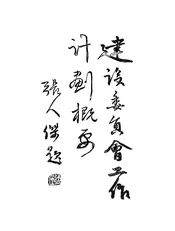 建設委員會工作
計劃概要
張人傑題